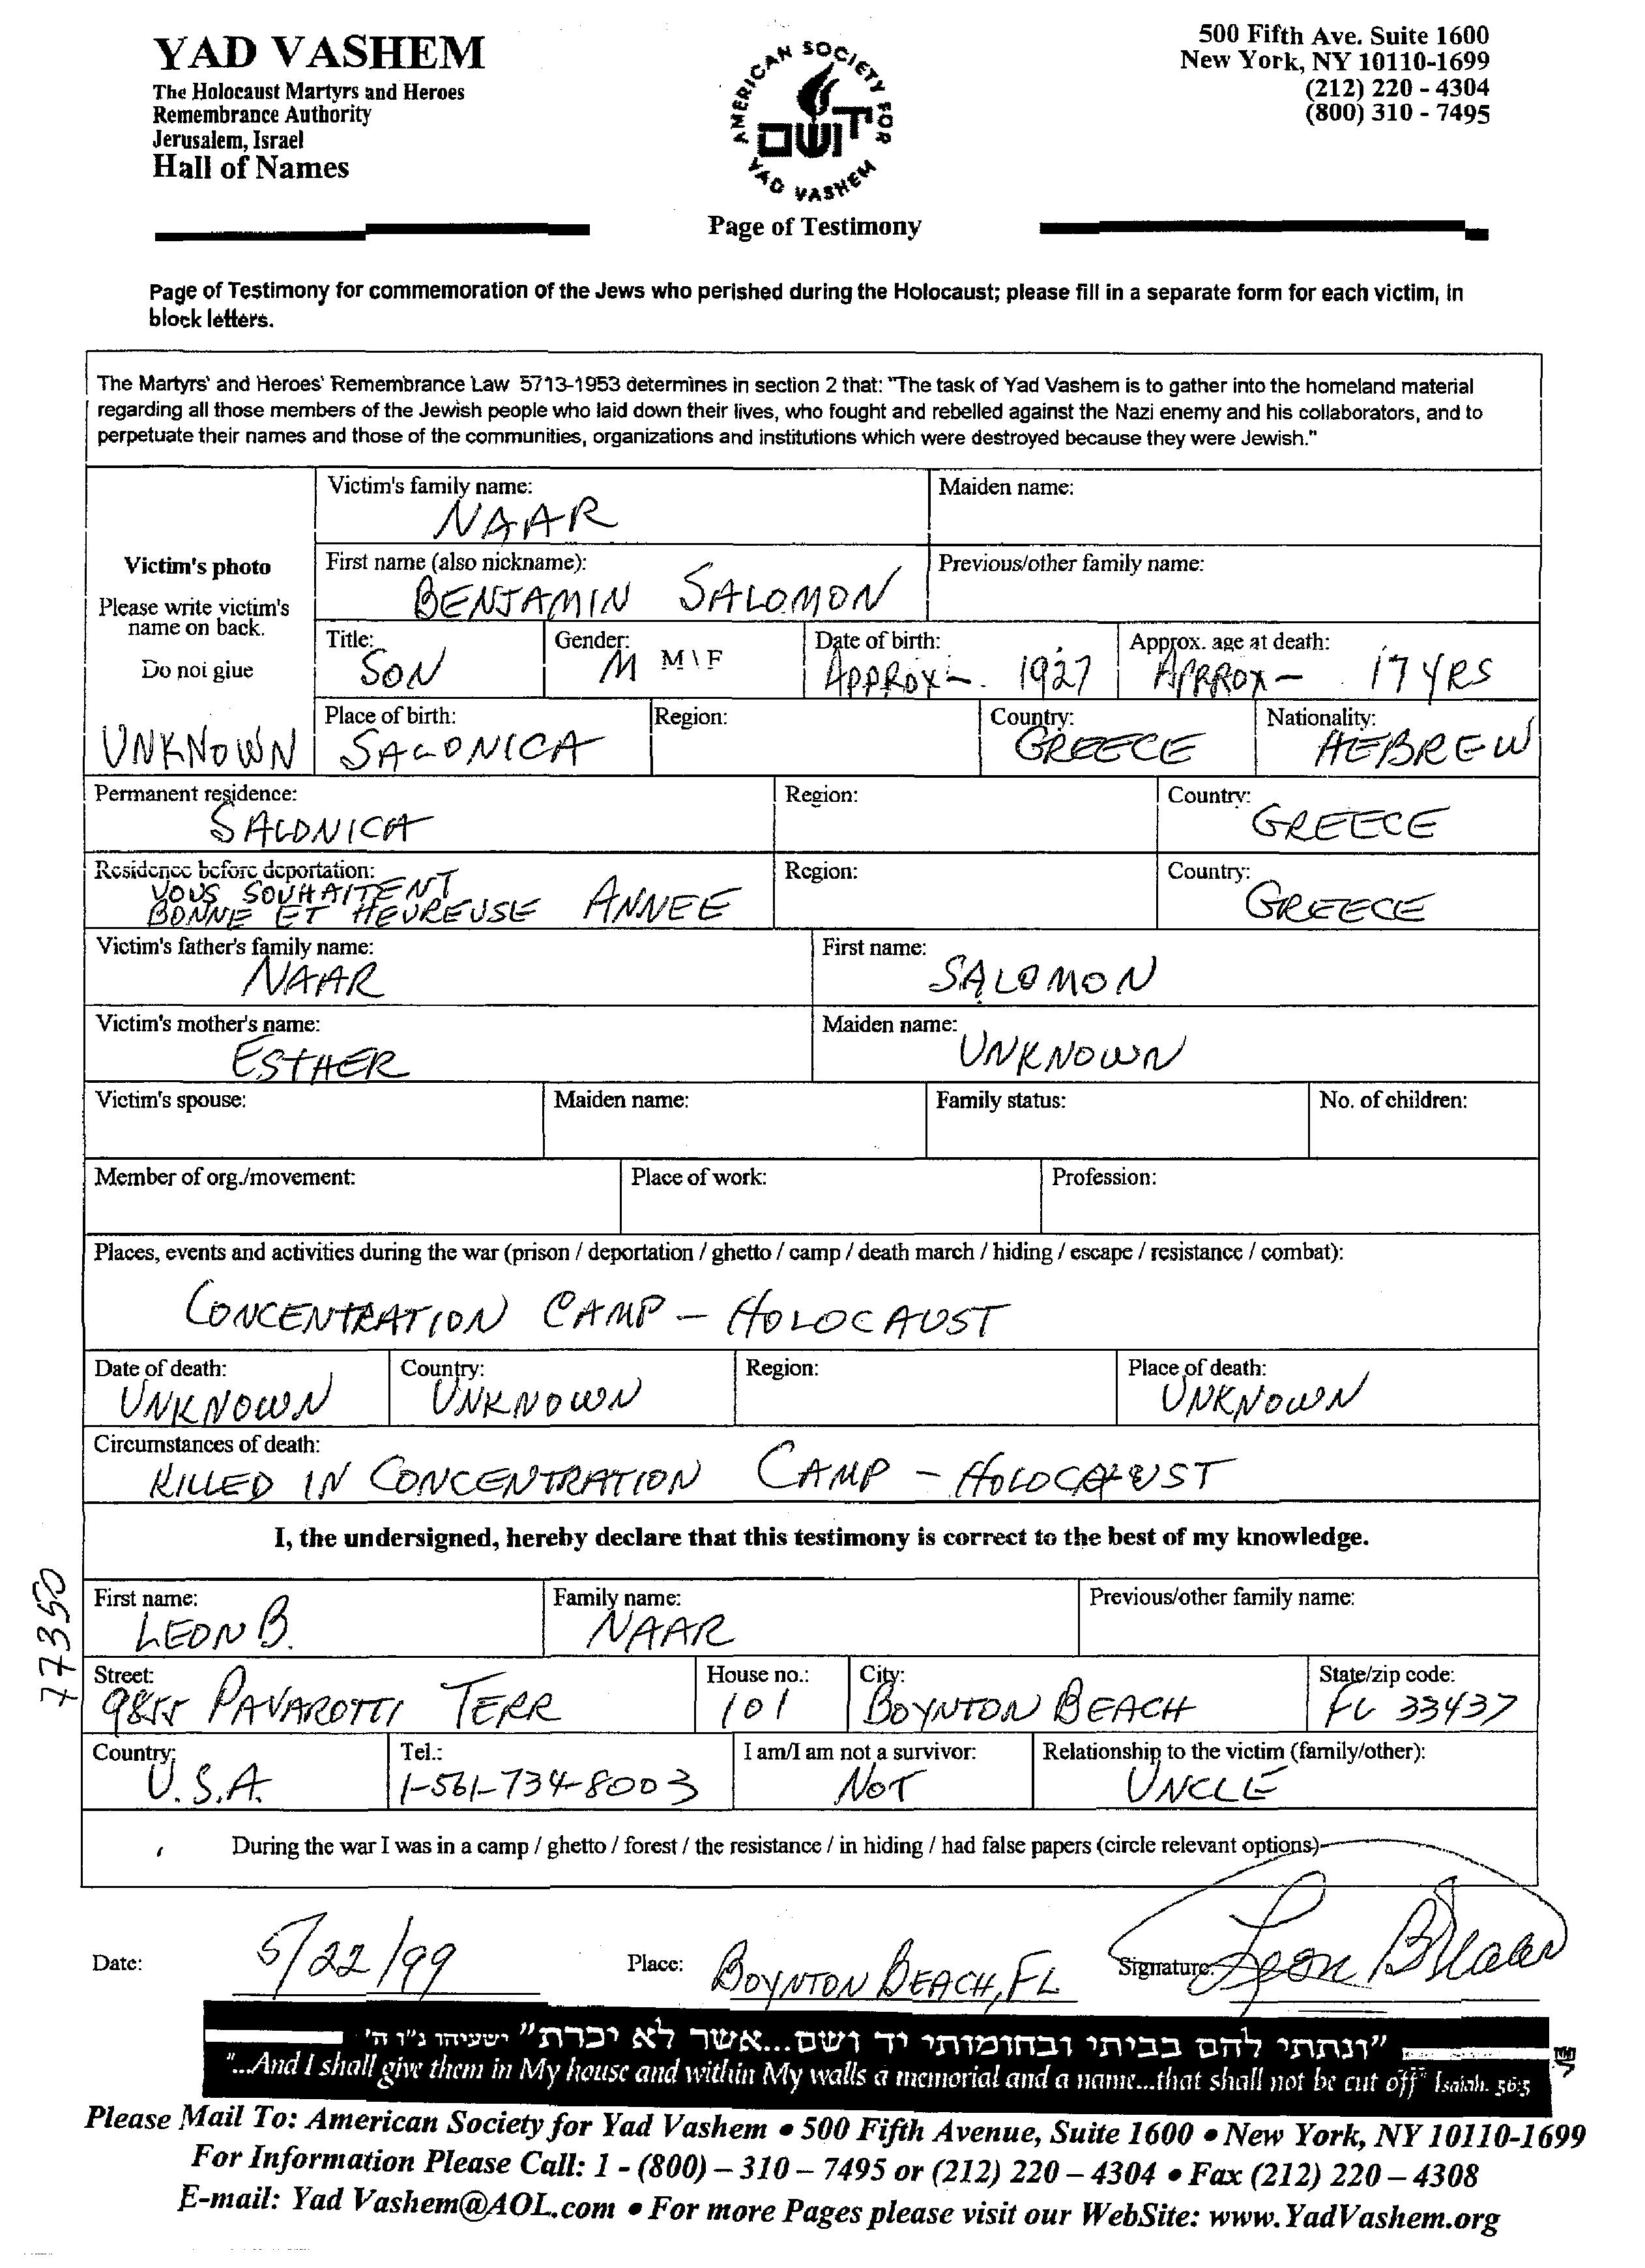 YAD VASHEM
The Holocaust Martyrs and Heroes
Remembrance Authority
Jerusalem, Israel
Hall of Names
AMERICAN SOCIETY FOR
יד ושם
YAD VASHEM
Page of Testimony
500 Fifth Ave. Suite 1600
New York, NY 10110-1699
(212) 220 - 4304
(800) 310 - 7495
Page of Testimony for commemoration of the Jews who perished during the Holocaust; please fill in a separate form for each victim, in
block letters.
The Martyrs' and Heroes' Remembrance Law 5713-1953 determines in section 2 that: "The task of Yad Vashem is to gather into the homeland material
regarding all those members of the Jewish people who laid down their lives, who fought and rebelled against the Nazi enemy and his collaborators, and to
perpetuate their names and those of the communities, organizations and institutions which were destroyed because they were Jewish."
Victim's photo
Please write victim's
name on back.
Do not glue
UNKNOWN
Victim's family name: Maiden name:
NAAR
First name (also nickname): Previous/other family name:
BENJAMIN SALOMON
Title: Gender: Date of birth: Approx. age at death:
SON M M\F APPROX-. 1927 APPROX- 17 YRS
Place of birth: Region: Country: Nationality:
SALONICA GREECE HEBREW
Permanent residence: Region: Country:
SALONICA GREECE
Residence before deportation: Region: Country:
VOUS SOUHAITENT
BONNE ET HEUREUSE ANNEE GREECE
Victim's father's family name: First name:
NAAR SALOMON
Victim's mother's name: Maiden name:
ESTHER UNKNOWN
Victim's spouse: Maiden name: Family status: No. of children:
Member of org./movement: Place of work: Profession:
Places, events and activities during the war (prison / deportation / ghetto / camp / death march / hiding / escape / resistance / combat):
CONCENTRATION CAMP - HOLOCAUST
Date of death: Country: Region: Place of death:
UNKNOWN UNKNOWN UNKNOWN
Circumstances of death:
KILLED IN CONCENTRATION CAMP - HOLOCAUST
I, the undersigned, hereby declare that this testimony is correct to the best of my knowledge.
77350
First name: Family name: Previous/other family name:
LEON B. NAAR
Street: House no.: City: State/zip code:
9855 PAVAROTTI TERR 101 BOYNTON BEACH FL 33437
Country: Tel.: I am/I am not a survivor: Relationship to the victim (family/other):
U.S.A. 1-561-734-8003 NOT UNCLE
During the war I was in a camp / ghetto / forest / the resistance / in hiding / had false papers (circle relevant options)
Date: 5/22/99 Place: BOYNTON BEACH, FL Signature: Leon B Naar
"ונתתי להם בביתי ובחומותי יד ושם...אשר לא יכרת" ישעיהו נ"ו ה'
"...And I shall give them in My house and within My walls a memorial and a name...that shall not be cut off" Isaiah. 56:5
Please Mail To: American Society for Yad Vashem • 500 Fifth Avenue, Suite 1600 • New York, NY 10110-1699
For Information Please Call: 1 - (800) – 310 – 7495 or (212) 220 – 4304 • Fax (212) 220 – 4308
E-mail: Yad Vashem@AOL.com • For more Pages please visit our WebSite: www.YadVashem.org